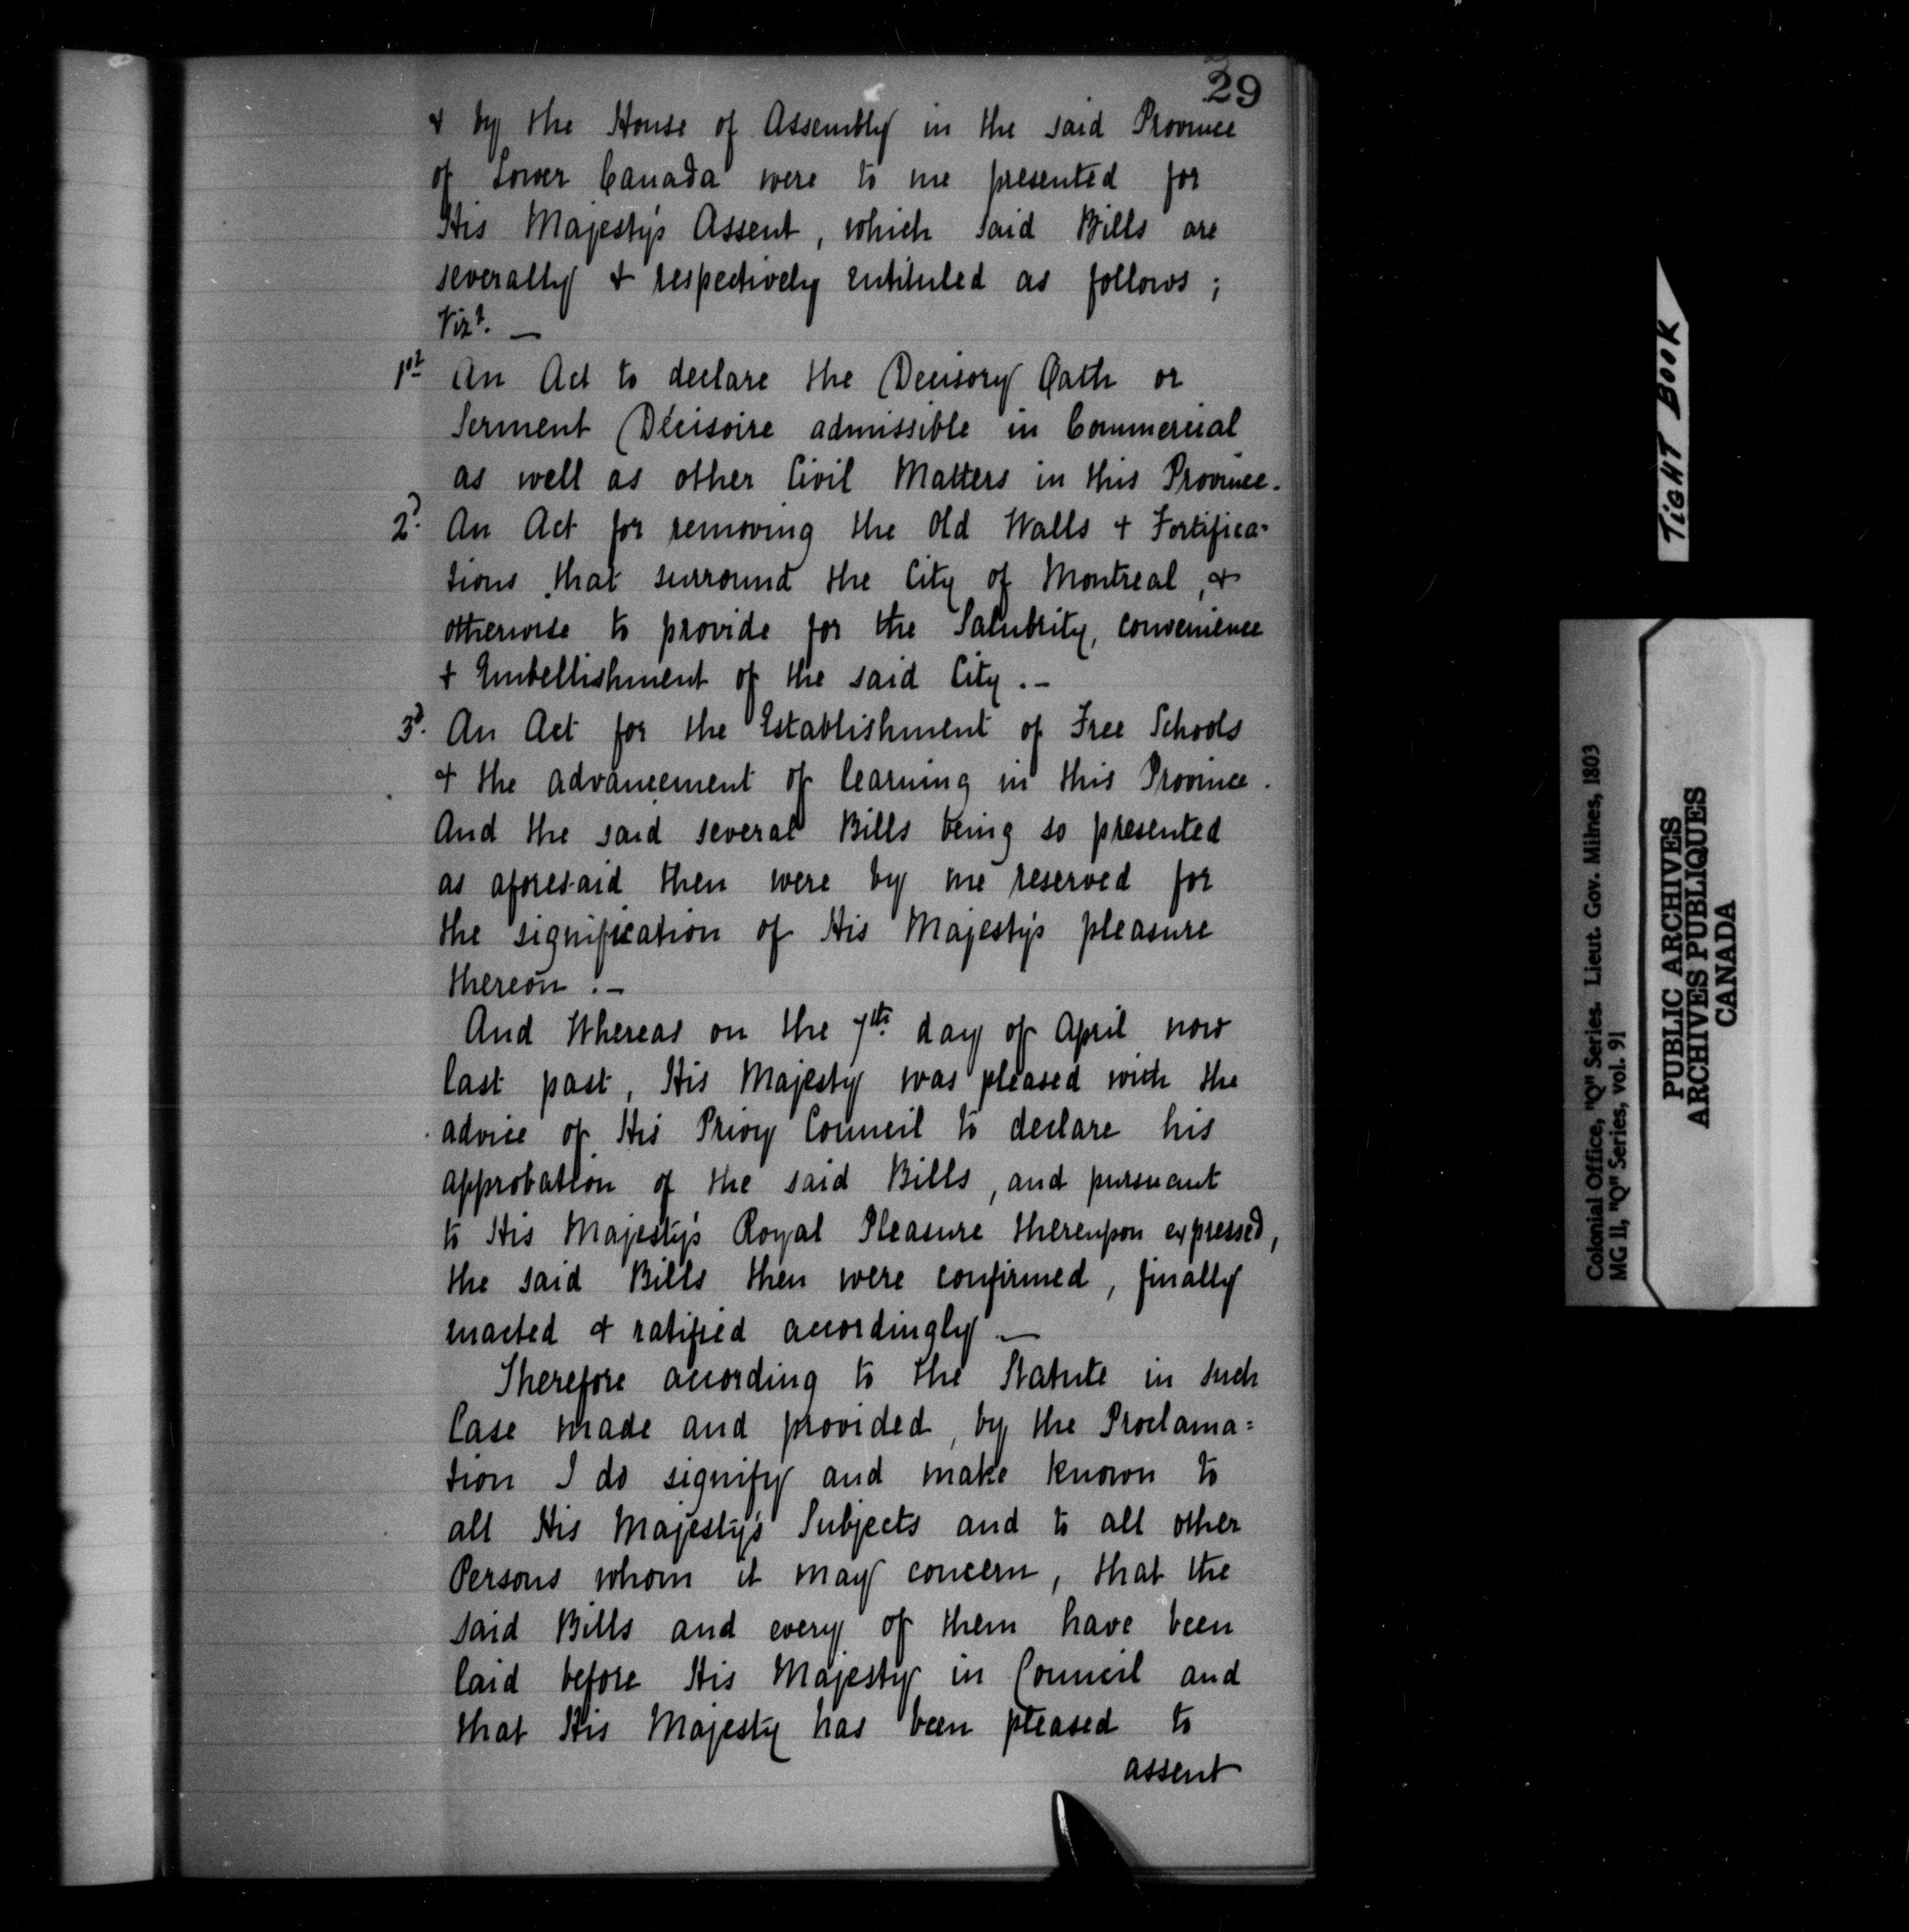 29
& by the House of Assembly in the said Province
of Lower Canada were to me presented for
His Majesty's Assent, which said Bills are
severally & respectively entituled as follows;
Vizt. —
1st An Act to declare the Decisory Oath or
Serment Décisoire admissible in Commercial
as well as other Civil Matters in this Province.
2d. An Act for removing the Old Walls & Fortifica=
tions that surround the City of Montreal, &
otherwise to provide for the Salubrity, convenience
& Embellishment of the said City. –
3d. An Act for the Establishment of Free Schools
& the advancement of learning in this Province.
And the said several Bills being so presented
as aforesaid then were by me reserved for
the signification of His Majesty's pleasure
thereon. –
And Whereas on the 7th day of April now
last past, His Majesty was pleased with the
advice of His Privy Council to declare his
approbation of the said Bills, and pursuant
to His Majesty's Royal Pleasure thereupon expressed,
the said Bills then were confirmed, finally
enacted & ratified accordingly. —
Therefore according to the Statute in such
Case made and provided, by the Proclama=
tion I do signify and make known to
all His Majesty's Subjects and to all other
Persons whom it may concern, that the
said Bills and every of them have been
laid before His Majesty in Council and
that His Majesty has been pleased to
assent
TIGHT BOOK
Colonial Office, "Q" Series. Lieut. Gov. Milnes, 1803
MG 11, "Q" Series, vol. 91
PUBLIC ARCHIVES
ARCHIVES PUBLIQUES
CANADA